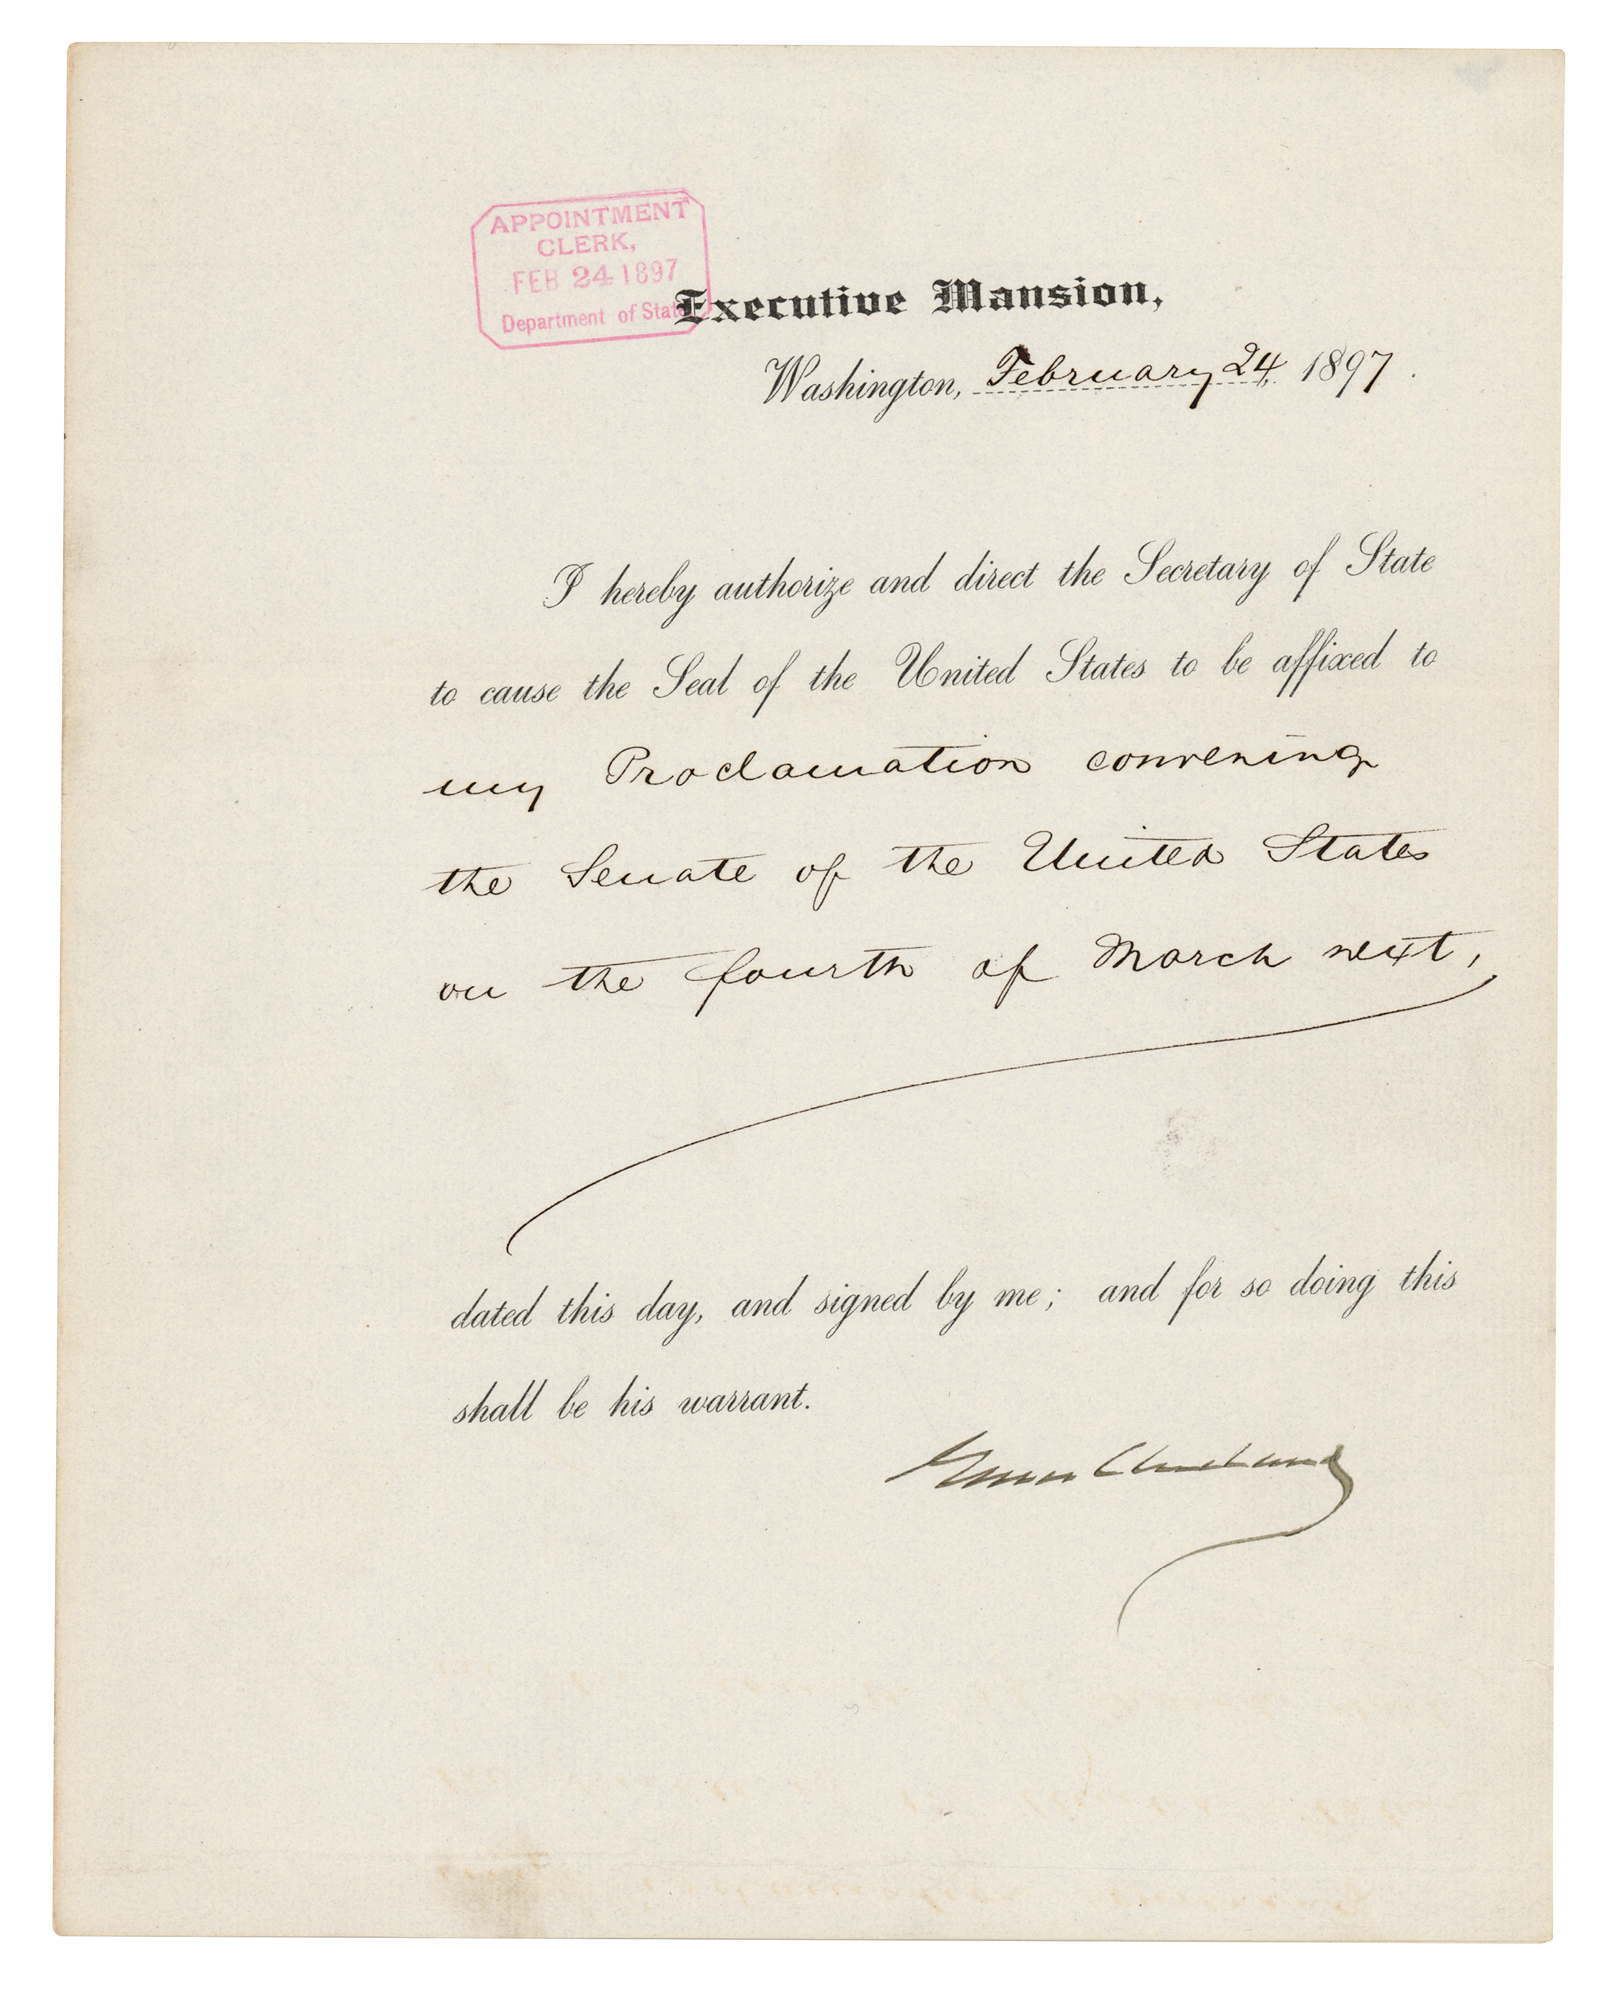 APPOINTMENT
CLERK,
FEB 24 1897
Department of State
Executive Mansion,
Washington, February 24, 1897.
I hereby authorize and direct the Secretary of State
to cause the Seal of the United States to be affixed to
my Proclamation convening
the Senate of the United States
on the fourth of March next,
dated this day, and signed by me; and for so doing this
shall be his warrant.
Grover Cleveland